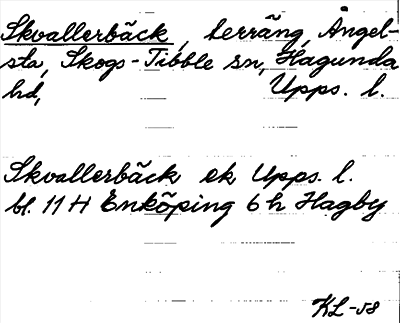 Skvallerbäck, terräng, Ängel-
sta, Skogs-Tibble sn, Hagunda
hd, Upps. l.
Skvallerbäck ek Upps. l.
bl. 11 H Enköping 6 h Hagby
KL-58